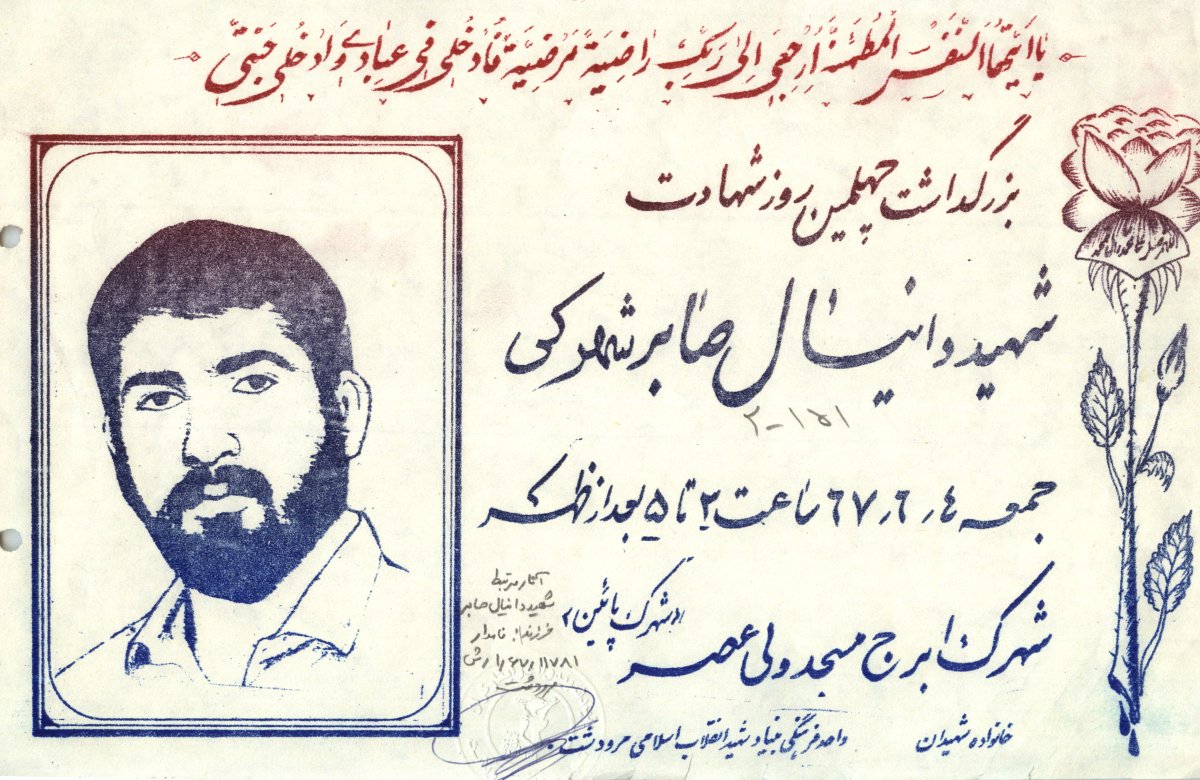 یا ایتها النفس المطمئنة ارجعی الی ربک راضیة مرضیة فادخلی فی عبادی وادخلی جنتی
بزرگداشت چهلمین روز شهادت
شهید دانیال صابر شهرکی
۲-۱۵۱
جمعه ٦٧٫٦٫٤ ساعت ۳ تا ۵ بعد از ظهر
(شهرک پائین)
شهرک ابرج مسجد ولی عصر
آثار مرتبط
شهید دانیال صابر
فرزند: نامدار
مرودشت
خانواده شهیدان
واحد فرهنگی بنیاد شهید انقلاب اسلامی مرودشت